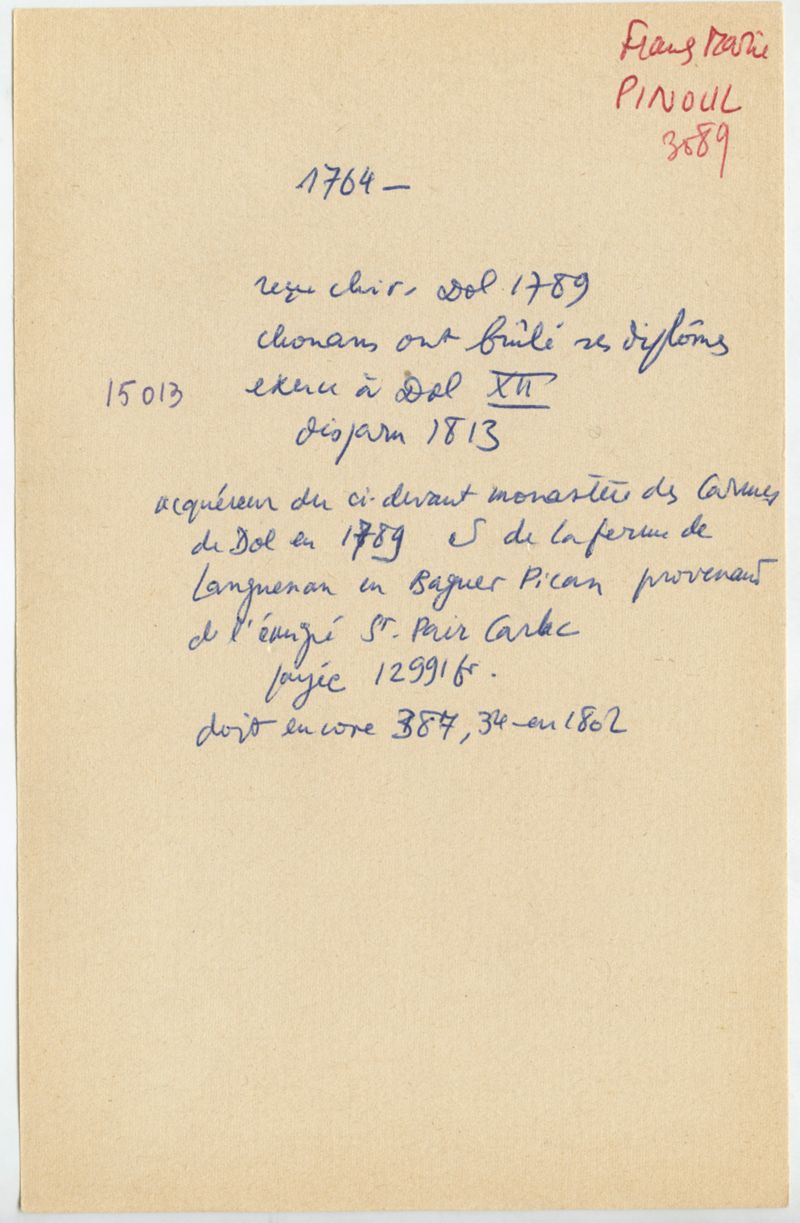 Franç Marie
PINOUL
3589
1764 –
reçu chir. Dol 1789
chouans ont brûlé ses diplômes
15013 exerce à Dol XII
disparu 1813
acquéreur du ci-devant monastère des Carmes
de Dol en 1789 et de la ferme de
Languenan en Baguer Pican provenant
de l'émigré St. Pair Carlac
payée 12991 fr.
doit encore 387,34 en 1802